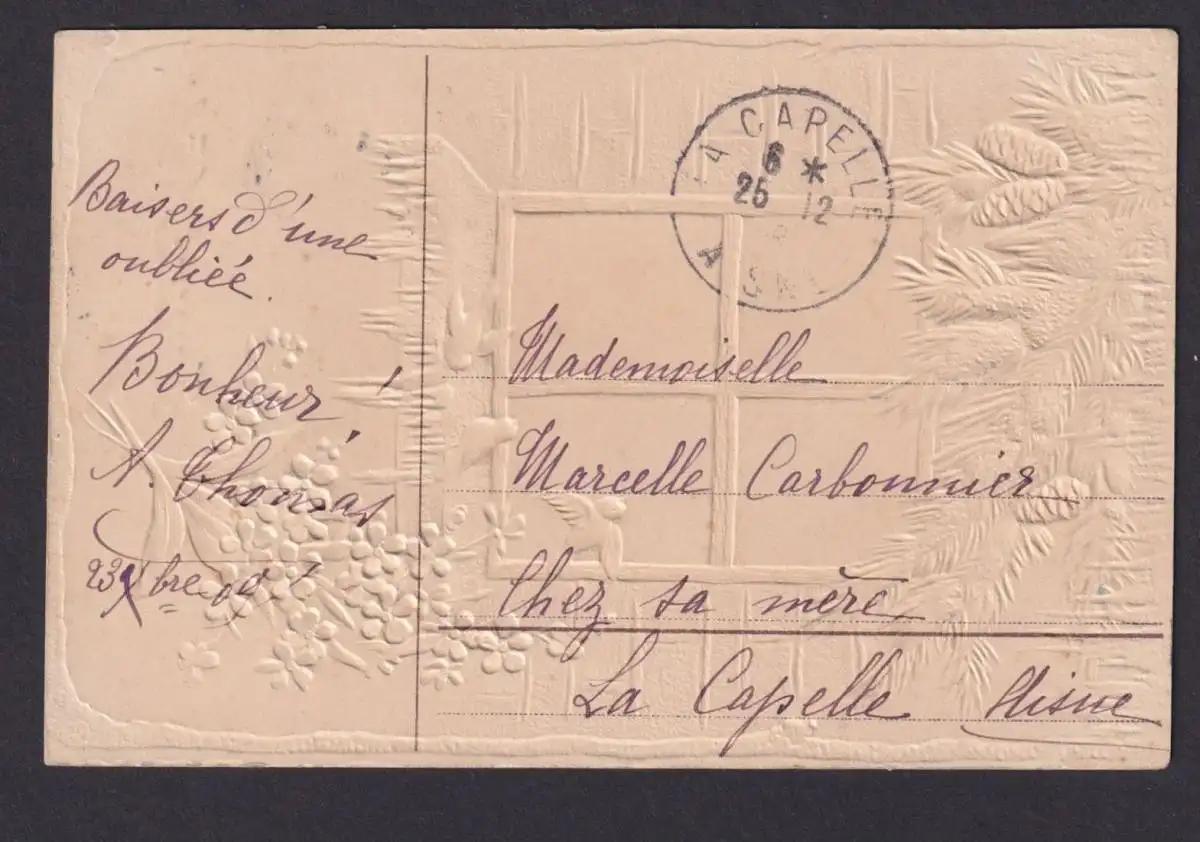 Baisers d'une
oubliée.
Bonheur!
A. Thomas
23 Xbre 09
LA CAPELLE
6 *
25 12
AISNE
Mademoiselle
Marcelle Carbonnier
Chez sa mère
La Capelle Aisne